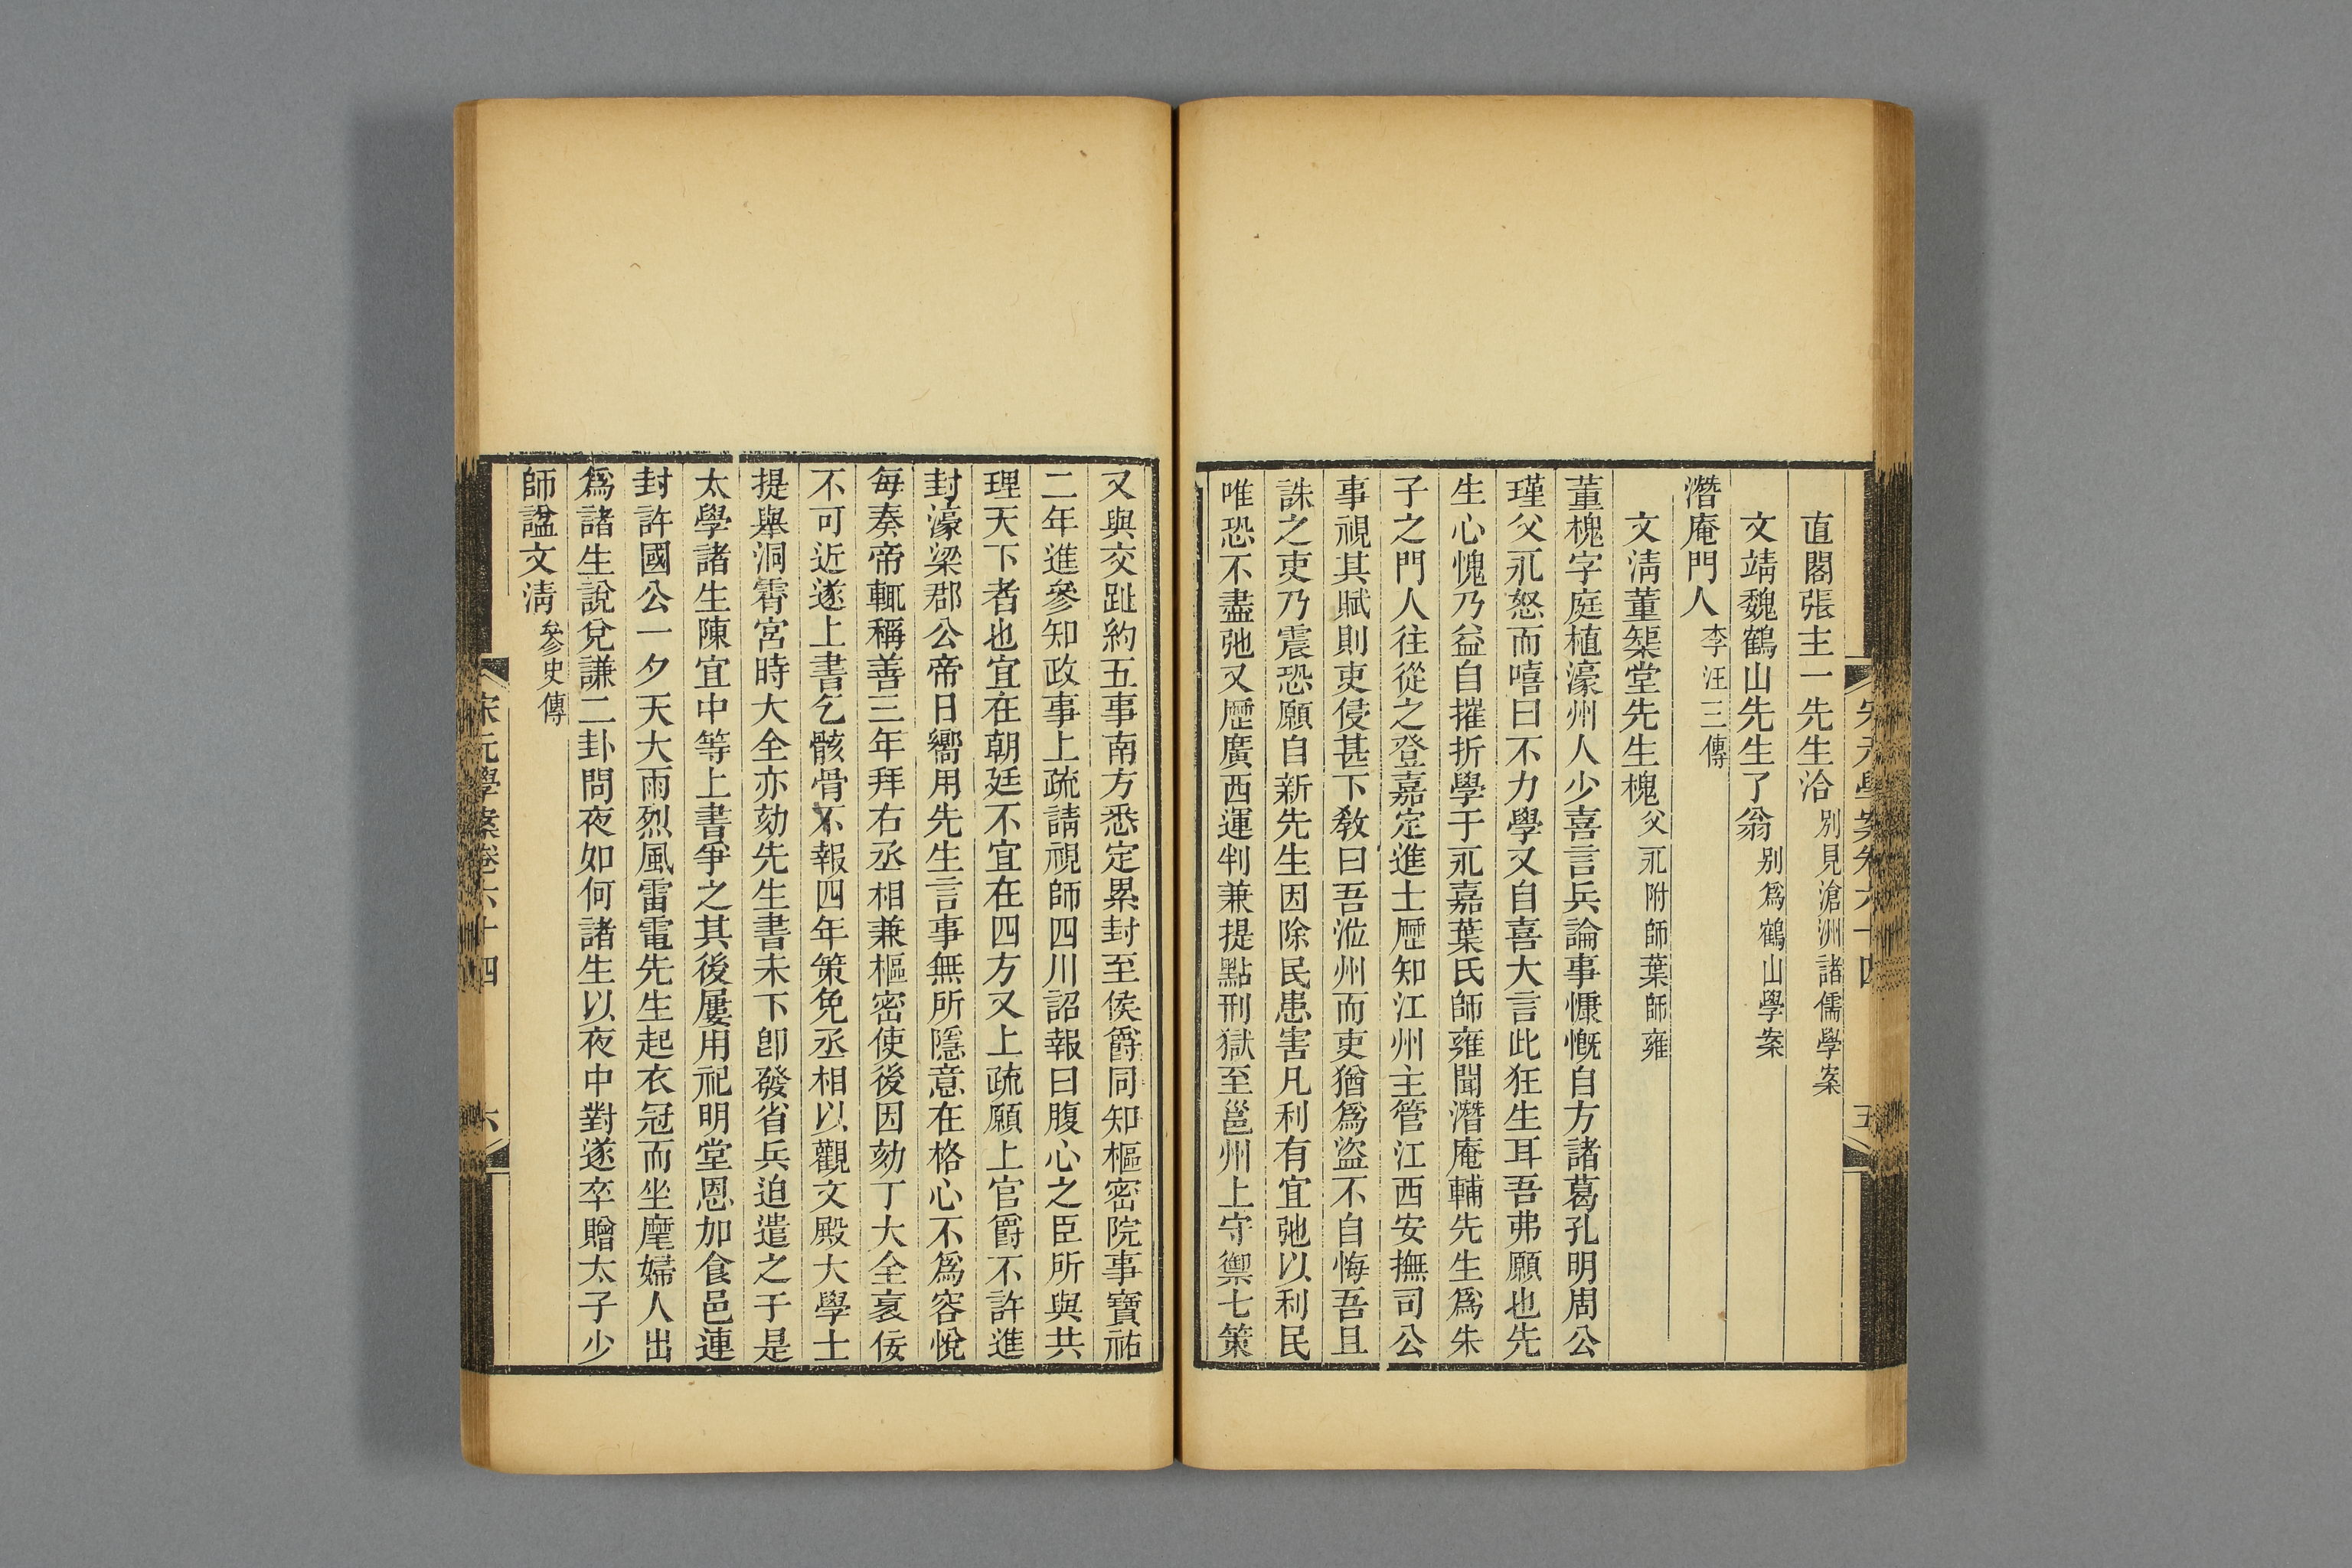 直閣張主一先生洽別見滄洲諸儒學案
文靖魏鶴山先生了翁別爲鶴山學案
潛庵門人李汪三傳
文淸董榘堂先生槐父永附師葉師雍
董槐字庭植濠州人少喜言兵論事慷慨自方諸葛孔明周公
瑾父永怒而嘻曰不力學又自喜大言此狂生耳吾弗願也先
生心愧乃益自摧折學于永嘉葉氏師雍聞潛庵輔先生爲朱
子之門人往從之登嘉定進士歷知江州主管江西安撫司公
事視其賦則吏侵甚下敎曰吾涖州而吏猶爲盜不自悔吾且
誅之吏乃震恐願自新先生因除民患害凡利有宜弛以利民
唯恐不盡弛又歷廣西運判兼提點刑獄至邕州上守禦七策
又與交趾約五事南方悉定累封至侯爵同知樞密院事寶祐
二年進參知政事上疏請視師四川詔報曰腹心之臣所與共
理天下者也宜在朝廷不宜在四方又上疏願上官爵不許進
封濠梁郡公帝日嚮用先生言事無所隱意在格心不爲容悅
每奏帝輒稱善三年拜右丞相兼樞密使後因劾丁大全裒佞
不可近遂上書乞骸骨不報四年策免丞相以觀文殿大學士
提舉洞霄宮時大全亦劾先生書未下卽發省兵迫遣之于是
太學諸生陳宜中等上書爭之其後屢用祀明堂恩加食邑連
封許國公一夕天大雨烈風雷電先生起衣冠而坐麾婦人出
爲諸生說兌謙二卦問夜如何諸生以夜中對遂卒贈太子少
師諡文淸參史傳
宋元學案卷六十四
六